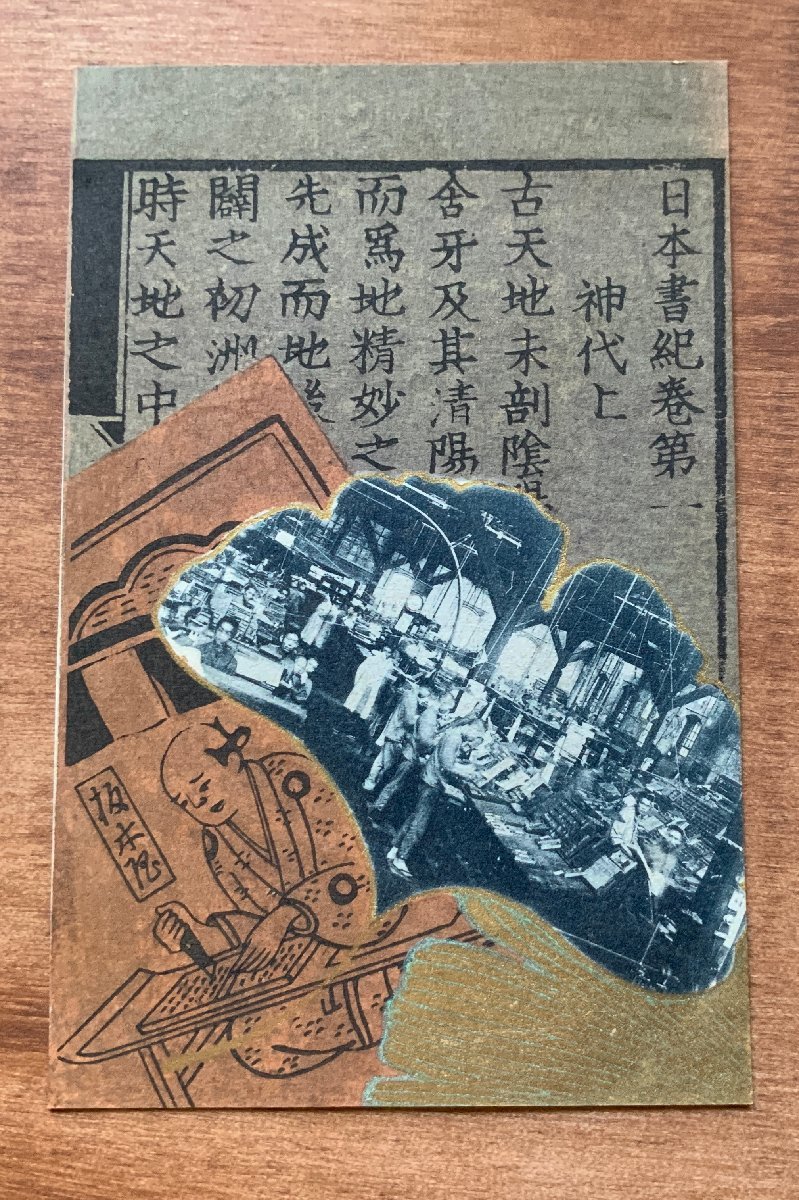 日本書紀卷第一
神代上
古天地未剖陰陽
含牙及其清陽
而爲地精妙之
先成而地後
闢之初洲
時天地之中
板木